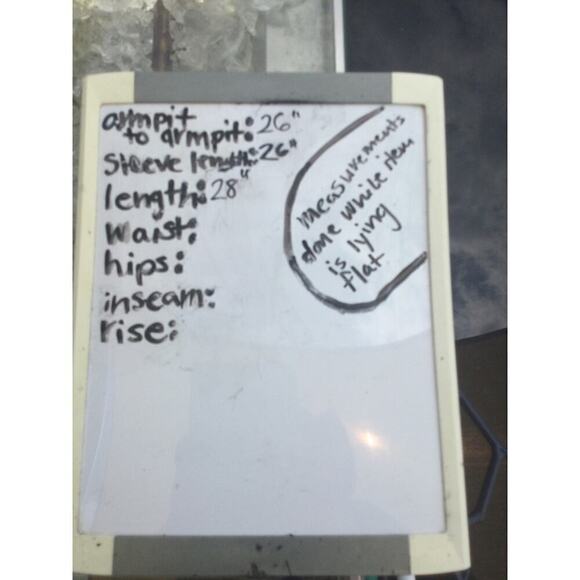 armpit
to armpit: 26"
Sleeve length: 26"
length: 28"
Waist:
hips:
inseam:
rise:
measurements
done while item
is lying
flat